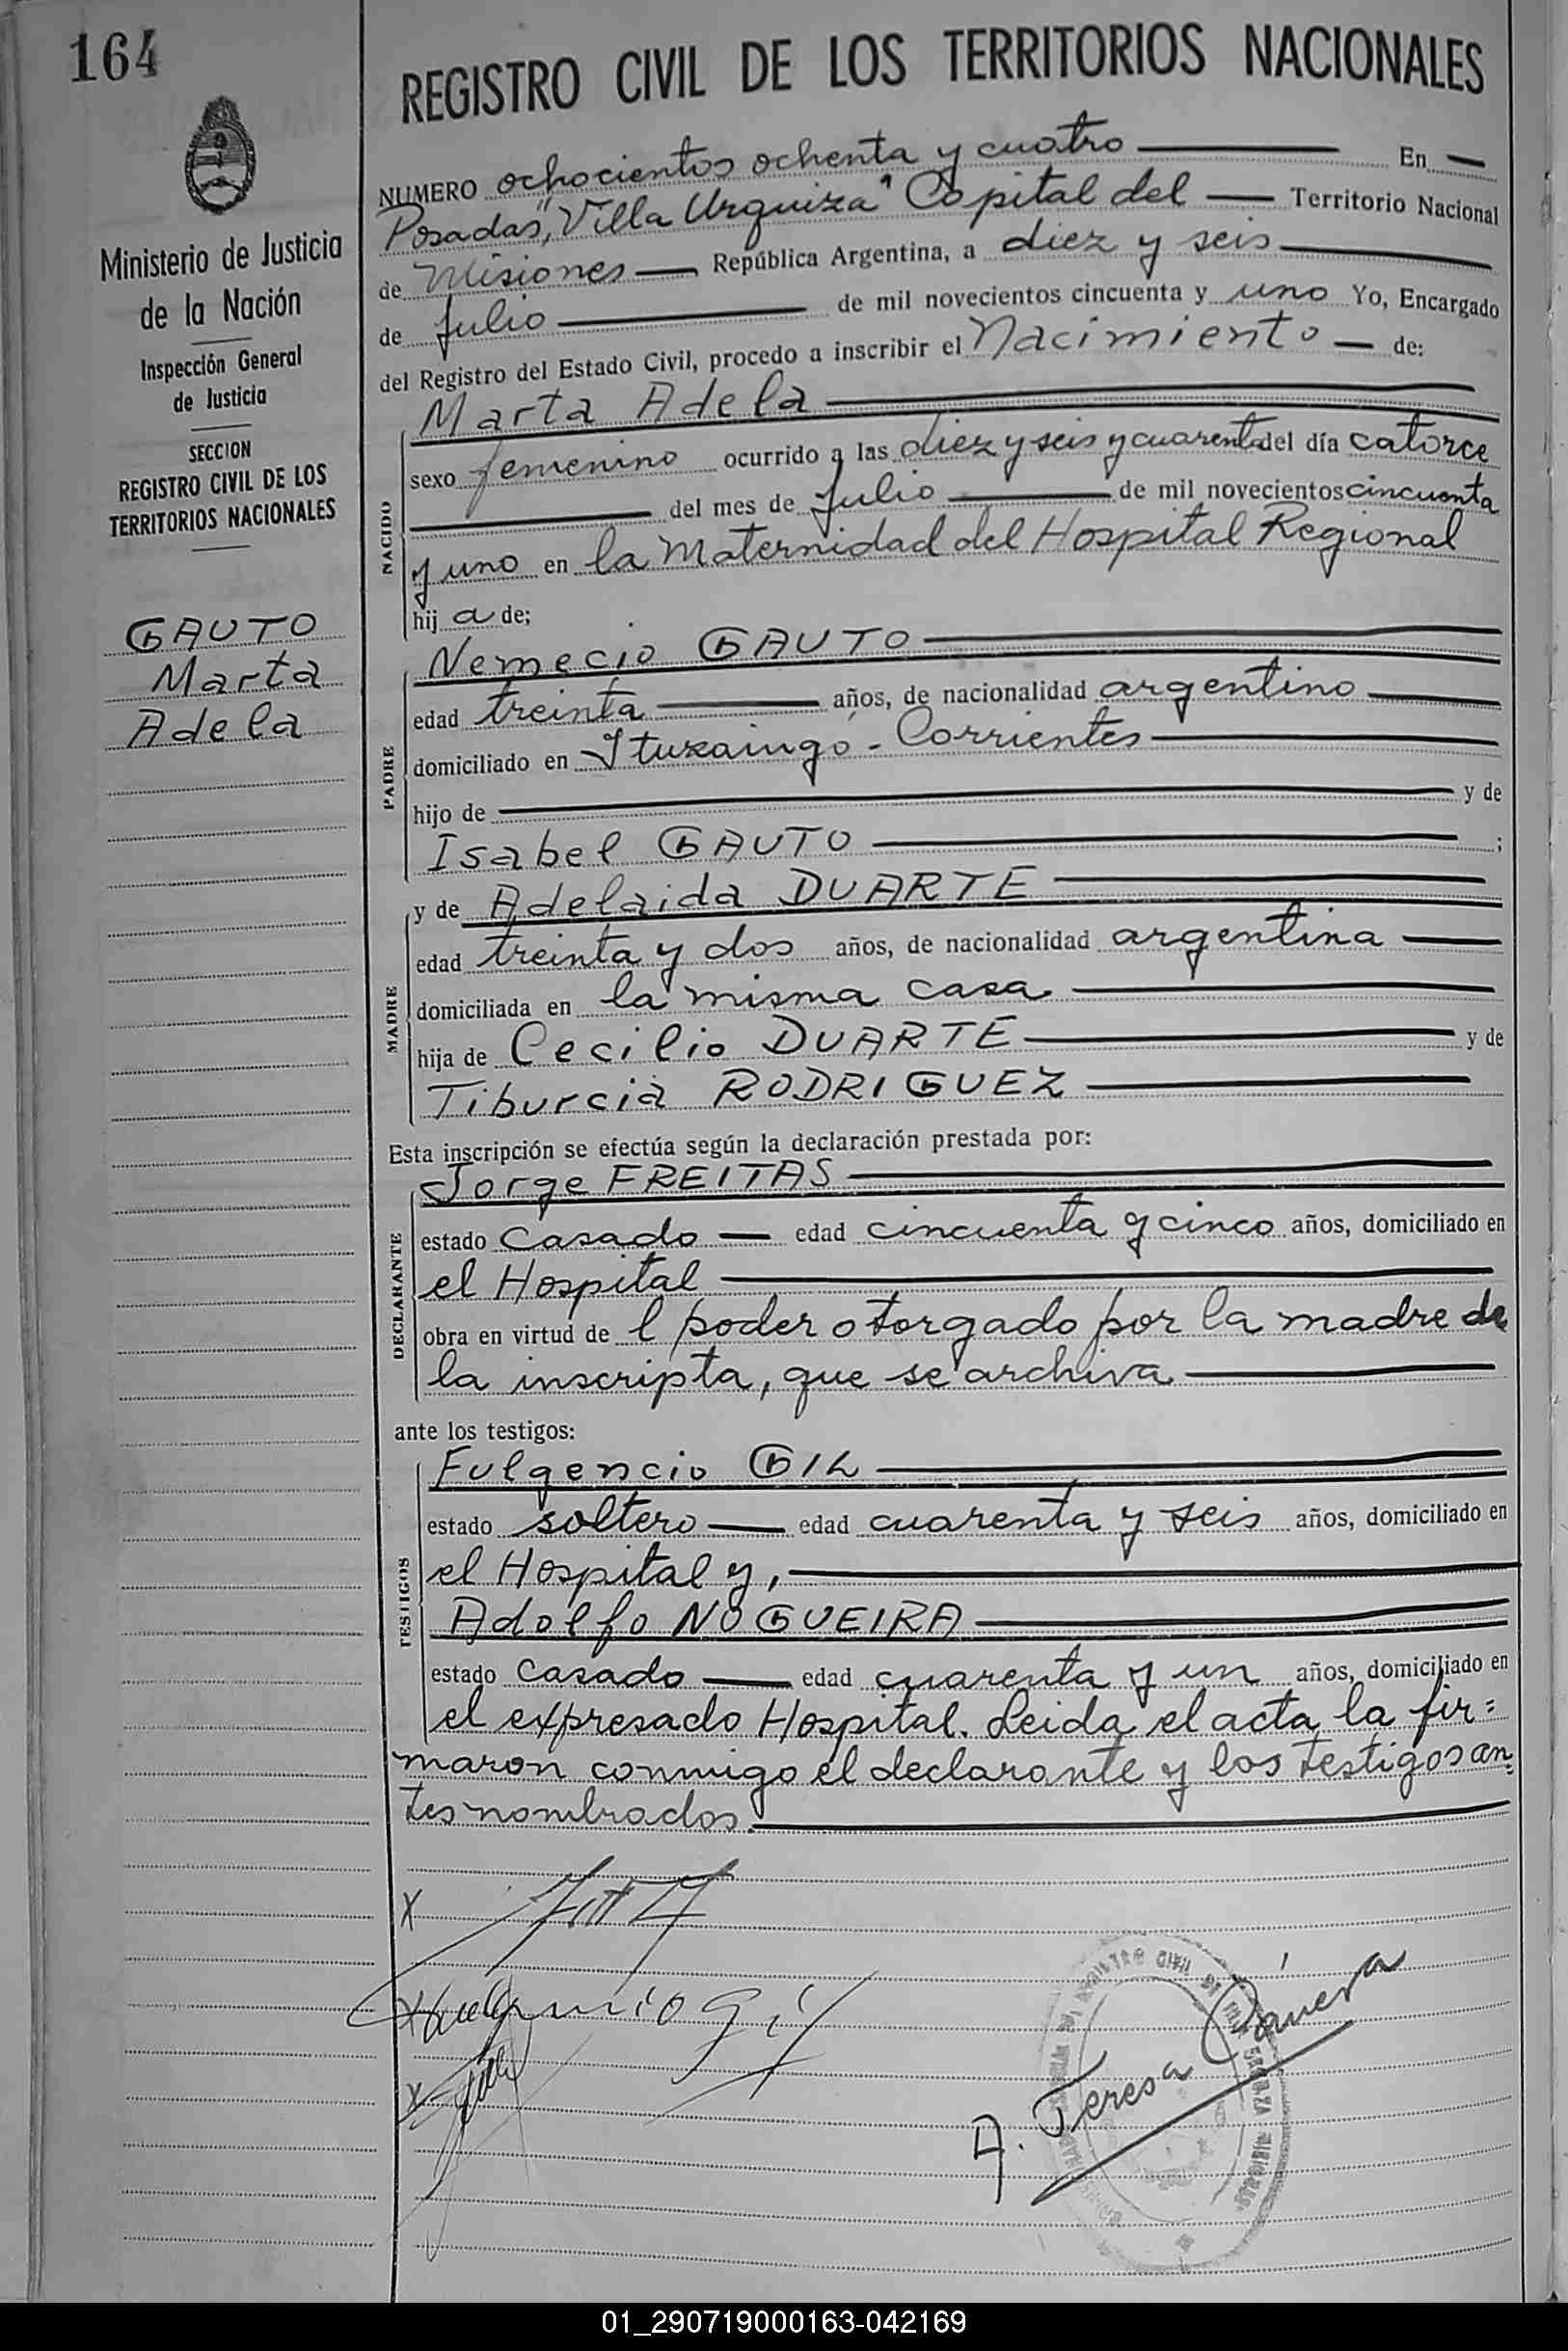 164
Ministerio de Justicia
de la Nación
Inspección General
de Justicia
SECCION
REGISTRO CIVIL DE LOS
TERRITORIOS NACIONALES
GAUTO
Marta
Adela
REGISTRO CIVIL DE LOS TERRITORIOS NACIONALES
NUMERO ochocientos ochenta y cuatro En
Posadas, "Villa Urquiza" Capital del Territorio Nacional
de Misiones República Argentina, a diez y seis
de Julio de mil novecientos cincuenta y uno Yo, Encargado
del Registro del Estado Civil, procedo a inscribir el Nacimiento de:
NACIDO
Marta Adela
sexo femenino ocurrido a las diez y seis y cuarenta del día catorce
del mes de Julio de mil novecientos cincuenta
y uno en la Maternidad del Hospital Regional
hij a de;
PADRE
Nemecio GAUTO
edad treinta años, de nacionalidad argentino
domiciliado en Ituzaingó - Corrientes
hijo de y de
Isabel GAUTO ;
MADRE
y de Adelaida DUARTE
edad treinta y dos años, de nacionalidad argentina
domiciliada en la misma casa
hija de Cecilio DUARTE y de
Tiburcia RODRIGUEZ
Esta inscripción se efectúa según la declaración prestada por:
DECLARANTE
Jorge FREITAS
estado casado edad cincuenta y cinco años, domiciliado en
el Hospital
obra en virtud de l poder otorgado por la madre de
la inscripta, que se archiva
ante los testigos:
TESTIGOS
Fulgencio GIL
estado soltero edad cuarenta y seis años, domiciliado en
el Hospital y,
Adolfo NOGUEIRA
estado casado edad cuarenta y un años, domiciliado en
el expresado Hospital. Leida el acta la fir=
maron conmigo el declarante y los testigos an=
tes nombrados.
X
X Fulgencio Gil
X
A. Teresa
01_290719000163-042169